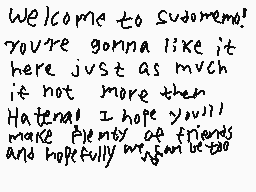 Welcome to sudomemo!
you're gonna like it
here just as much
if not more then
Hatena! I hope you'll
make plenty of friends
and hopefully we can be too